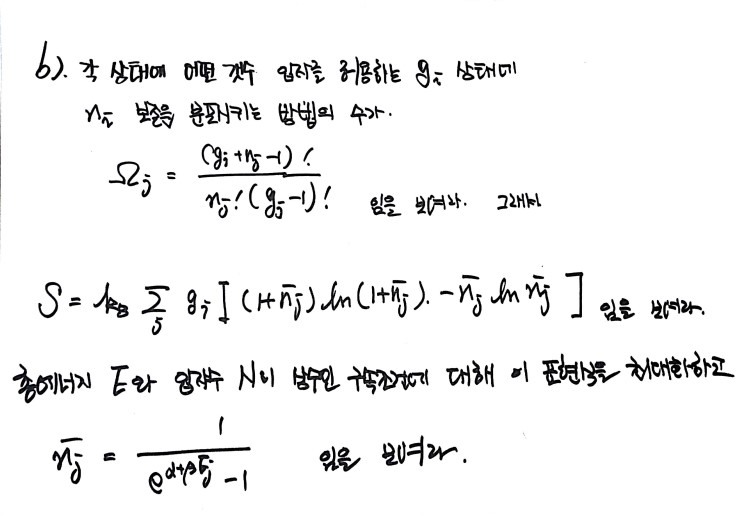 b). 각 상태에 어떤 갯수 입자를 허용하는 g_j 상태에
n_j 보존을 분포시키는 방법의 수가.
Ω_j = (g_j + n_j - 1)! / n_j! (g_j - 1)! 임을 보여라. 그래서
S = k_B Σ_j g_j [ (1+n̄_j) ln (1+n̄_j). - n̄_j ln n̄_j ] 임을 보여라.
총에너지 E와 입자수 N이 상수인 구속조건에 대해 이 표현식을 최대화하고
n̄_j = 1 / e^{α+βE_j} - 1 임을 보여라.